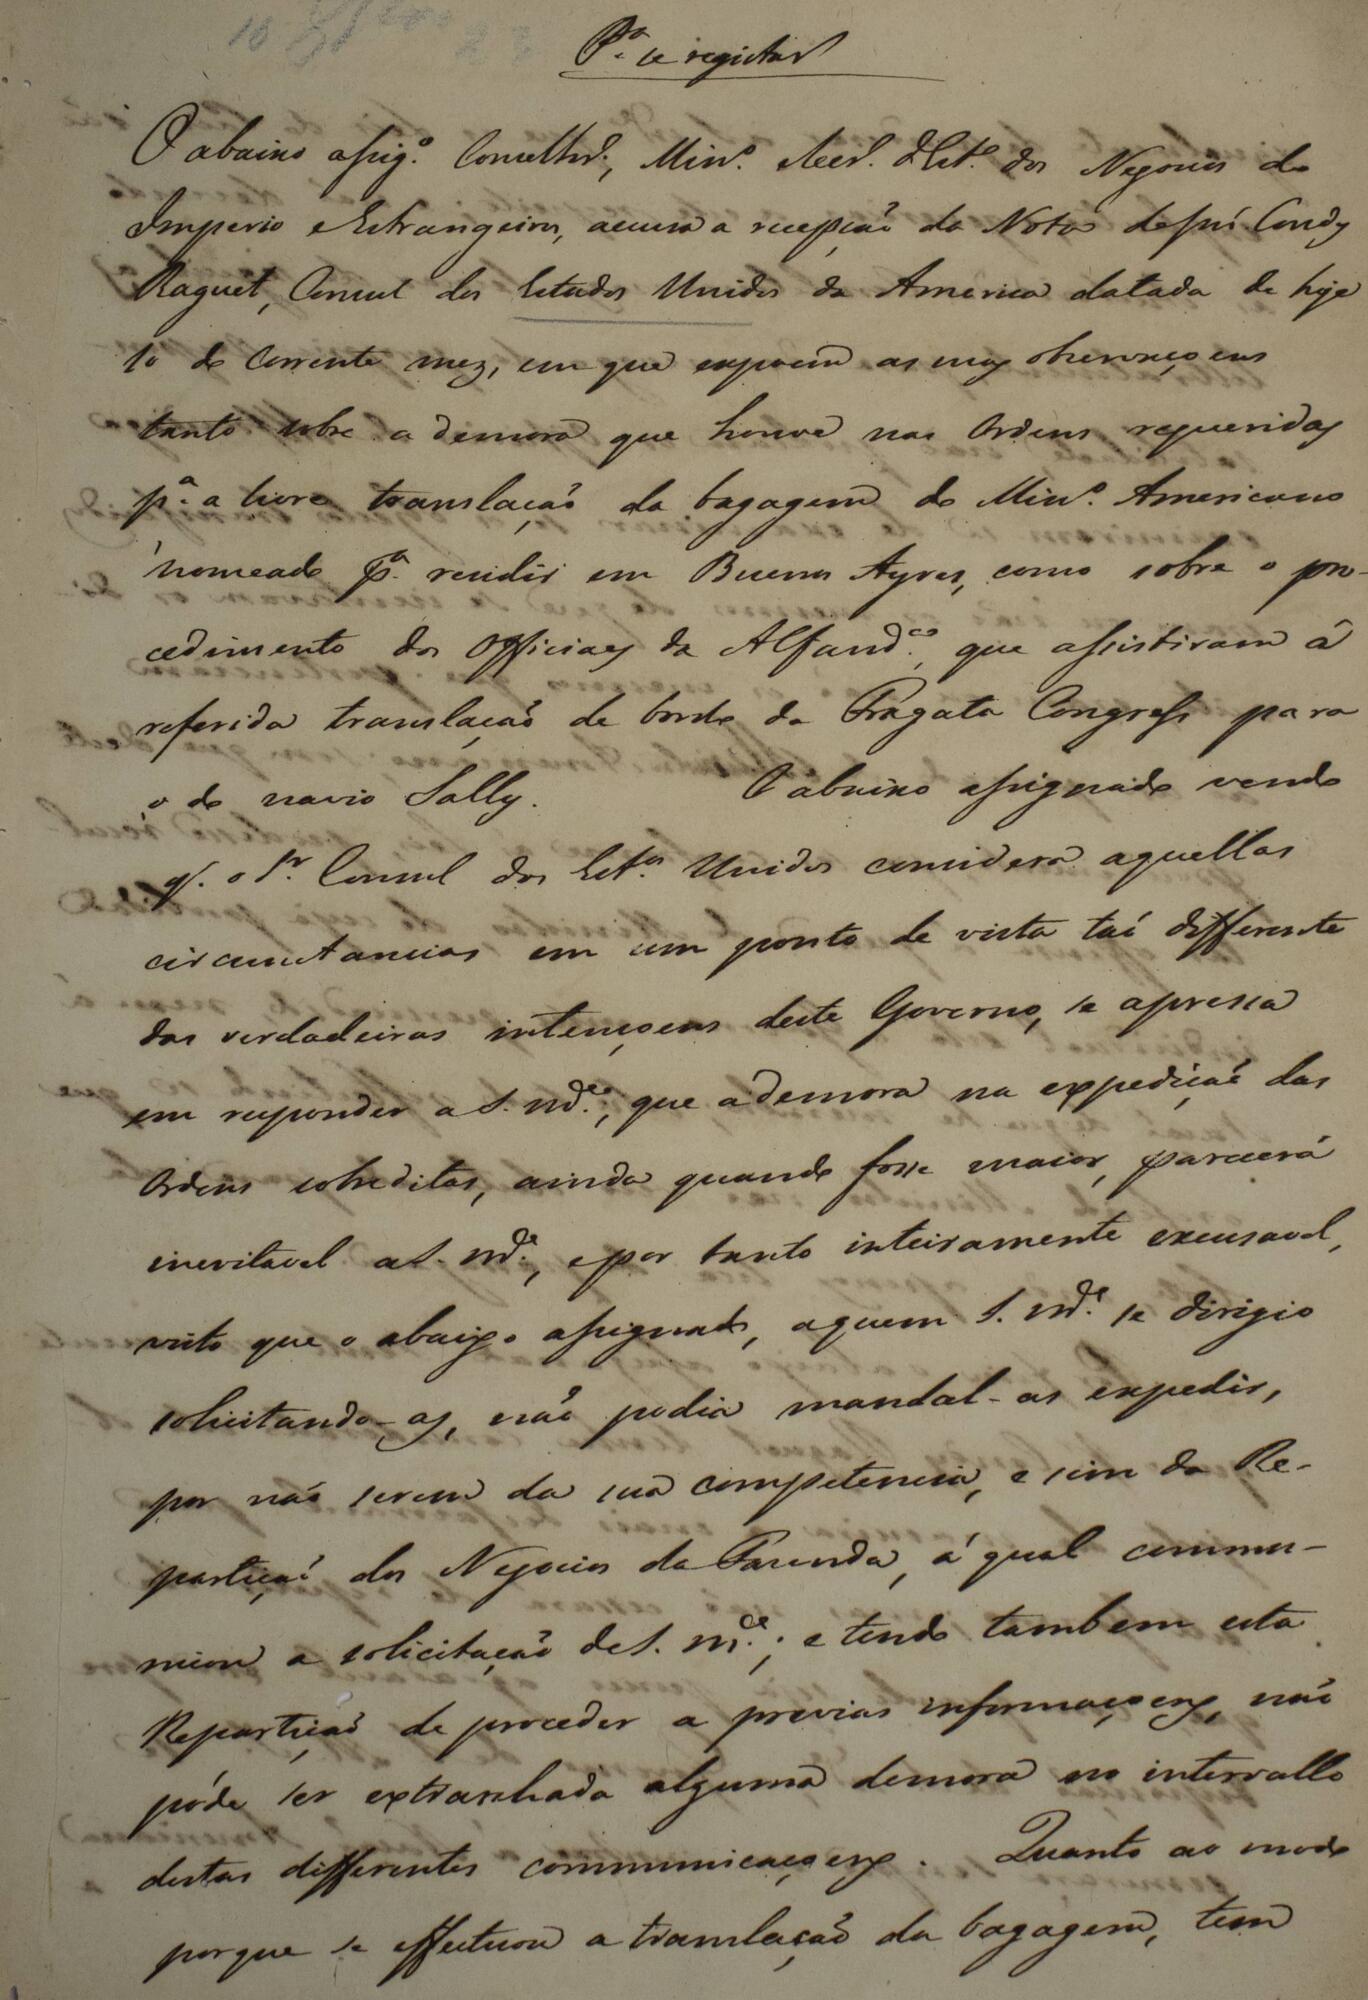 P.ª se registar
O abaixo assig.º Conselhr.º, Min.º e Secr.º d'Est.º dos Negocios do
Imperio e Estrangeiros, accusa a recepção da Nota de Condy
Raguet, Consul dos Estados Unidos da America datada de hoje
10 do corrente mez, em que expoem as suas observaçoens
tanto sobre a demora que houve nas Ordens requeridas
p.ª a livre translação da bagagem do Min.º Americano
nomeado p.ª residir em Buenos Ayres, como sobre o pro-
cedimento dos Officiaes da Alfand.ª, que assistiram á
referida translação de bordo da Fragata Congress para
o do navio Sally. O abaixo assignado vendo
q. o Sr. Consul dos Est.os Unidos considera aquellas
circunstancias em um ponto de vista taõ differente
das verdadeiras intençoens deste Governo, se apressa
em responder a S. M.ce, que a demora na expediçaõ das
Ordens sobreditas, ainda quando fosse maior, parecerá
inevitavel a S. M.ce, e por tanto inteiramente excusavel,
visto que o abaixo assignado, a quem S. M.ce se dirigio
solicitando-as, não podia mandal-as expedir,
por não serem da sua competencia, e sim da Re-
partiçaõ dos Negocios da Fazenda, á qual commu-
nicou a solicitação de S. M.ce; e tendo tambem esta
Repartiçaõ de proceder a previas informaçoens, não
póde ser extranhada alguma demora no intervallo
destas differentes communicaçoens. Quanto ao modo
porque se effectuou a translação da bagagem, tem